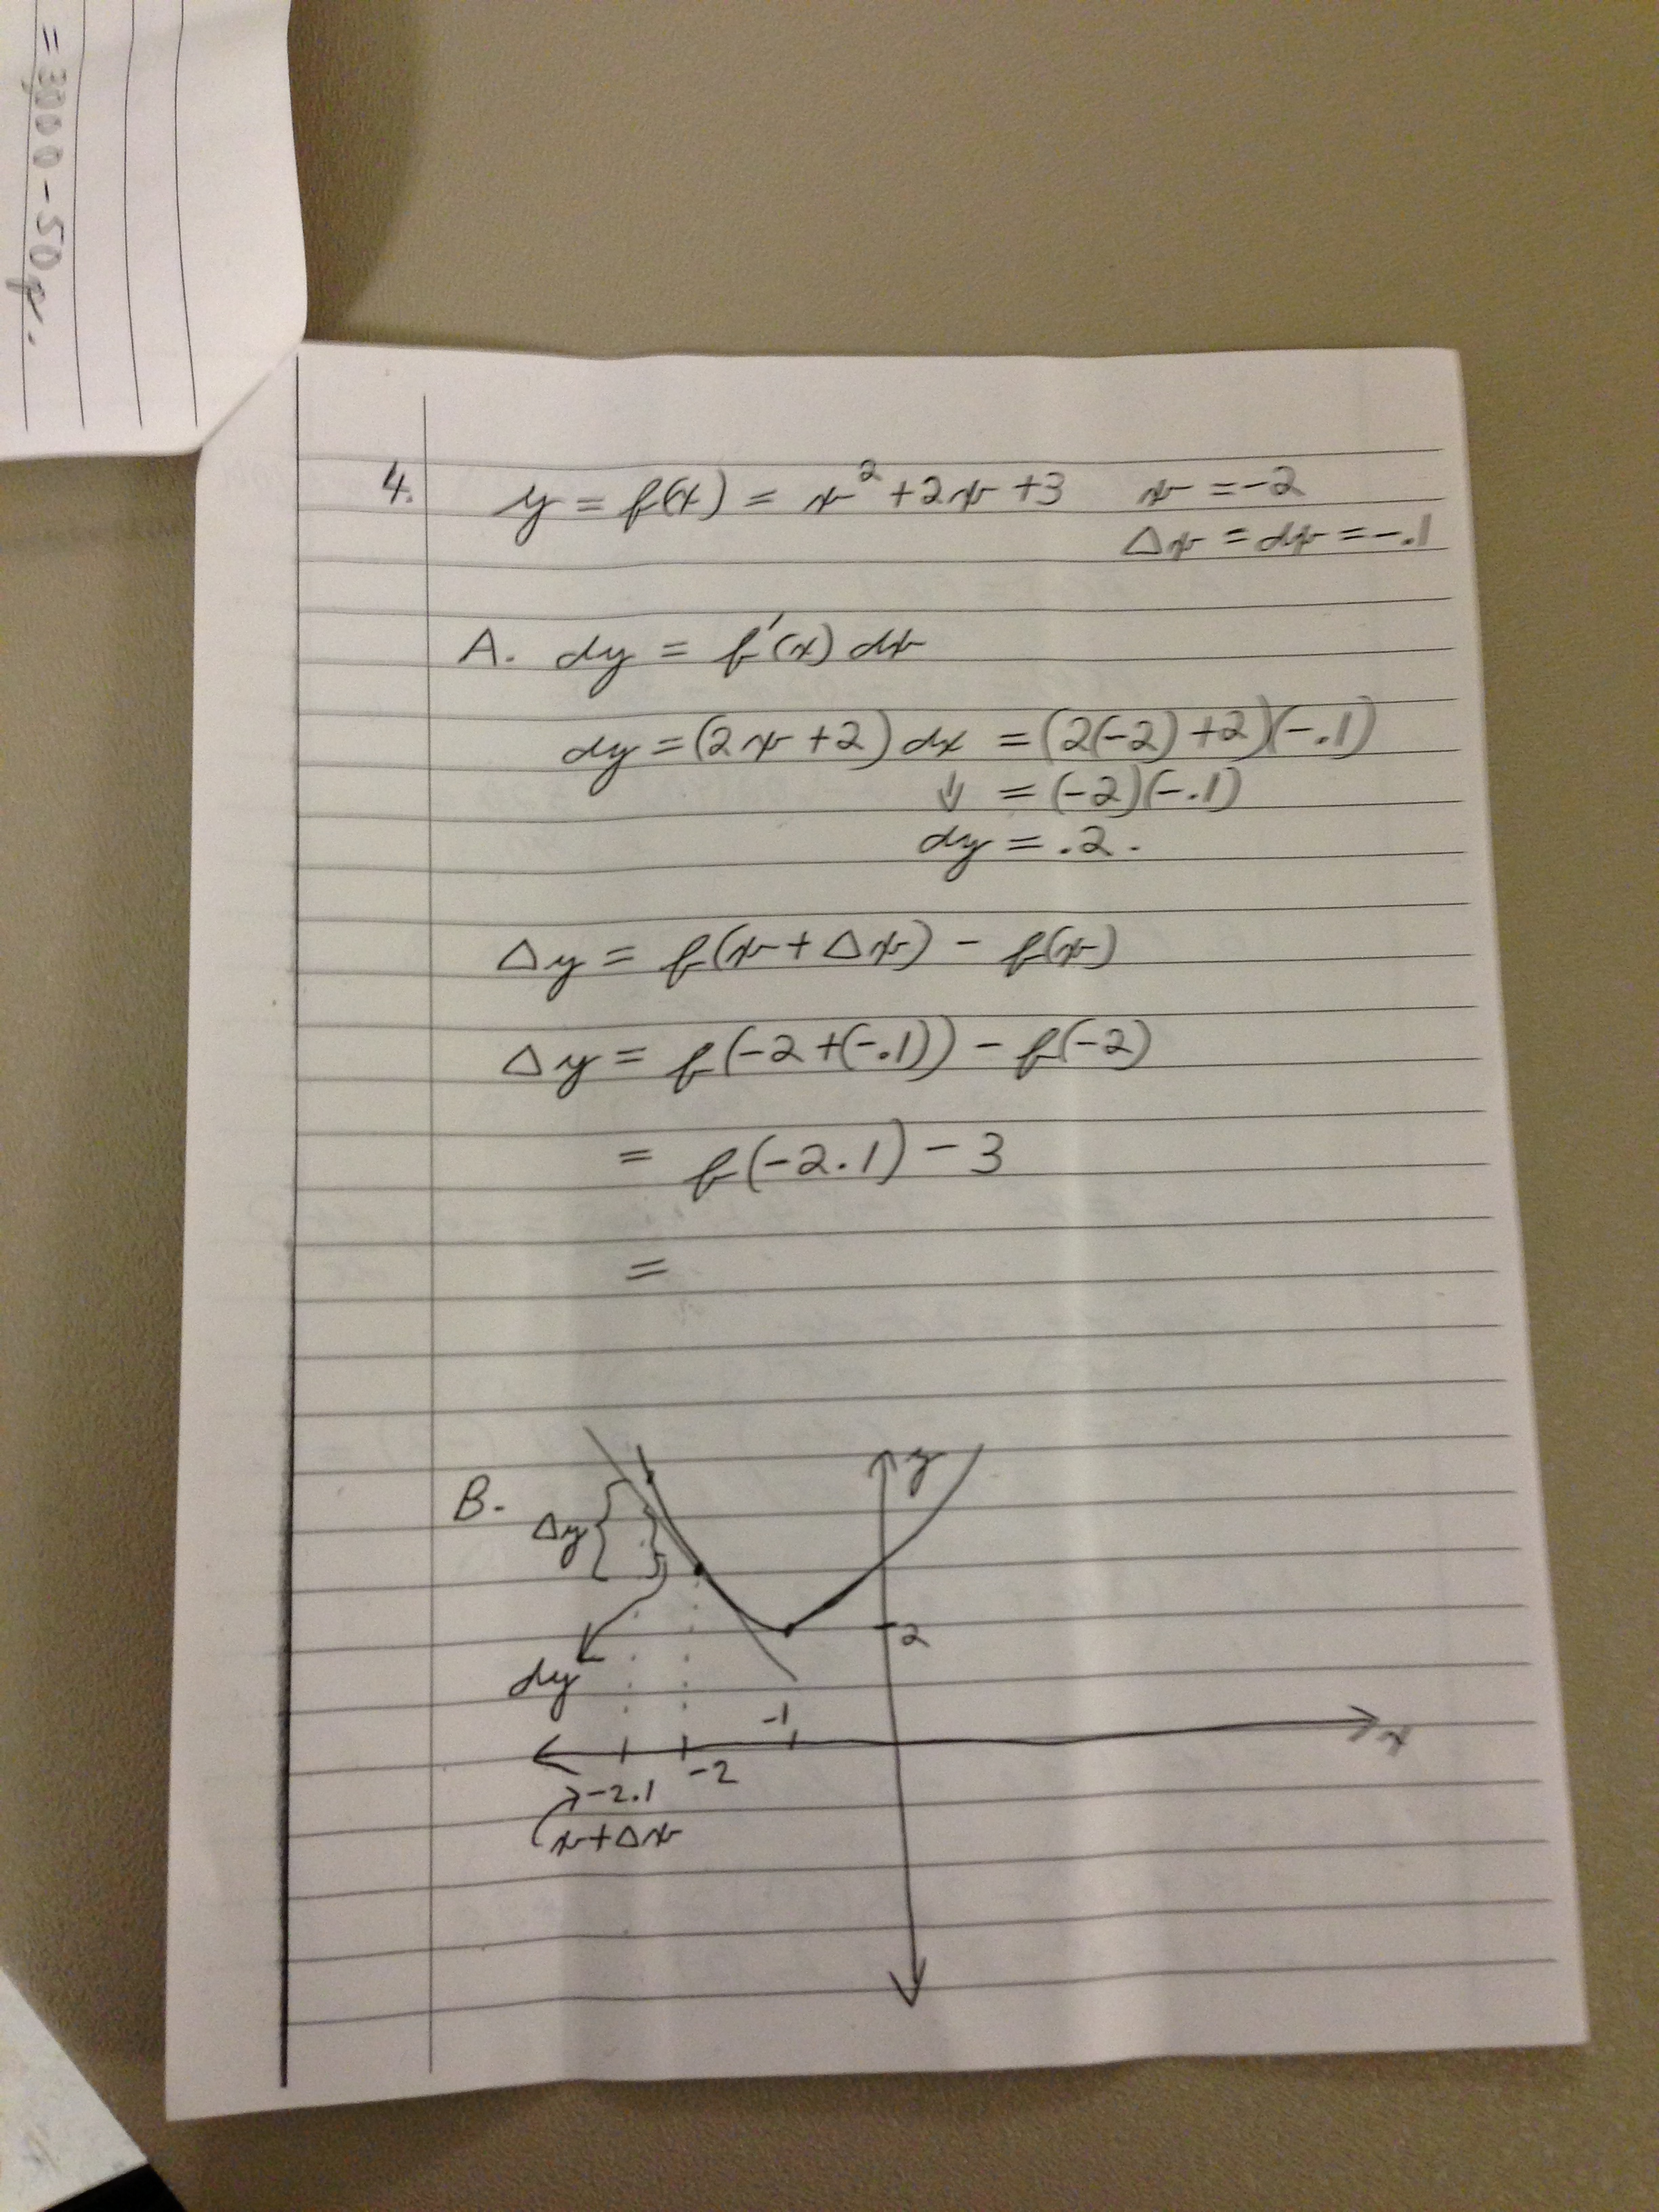 = 3000 - 50p.
4. y = f(x) = x² + 2x + 3 x = -2
Δx = dx = -.1
A. dy = f'(x) dx
dy = (2x + 2) dx = (2(-2) + 2)(-.1)
⇓ = (-2)(-.1)
dy = .2.
Δy = f(x + Δx) - f(x)
Δy = f(-2 + (-.1)) - f(-2)
= f(-2.1) - 3
=
B.
y
Δy
2
dy
-1
x
-2
-2.1
x + Δx